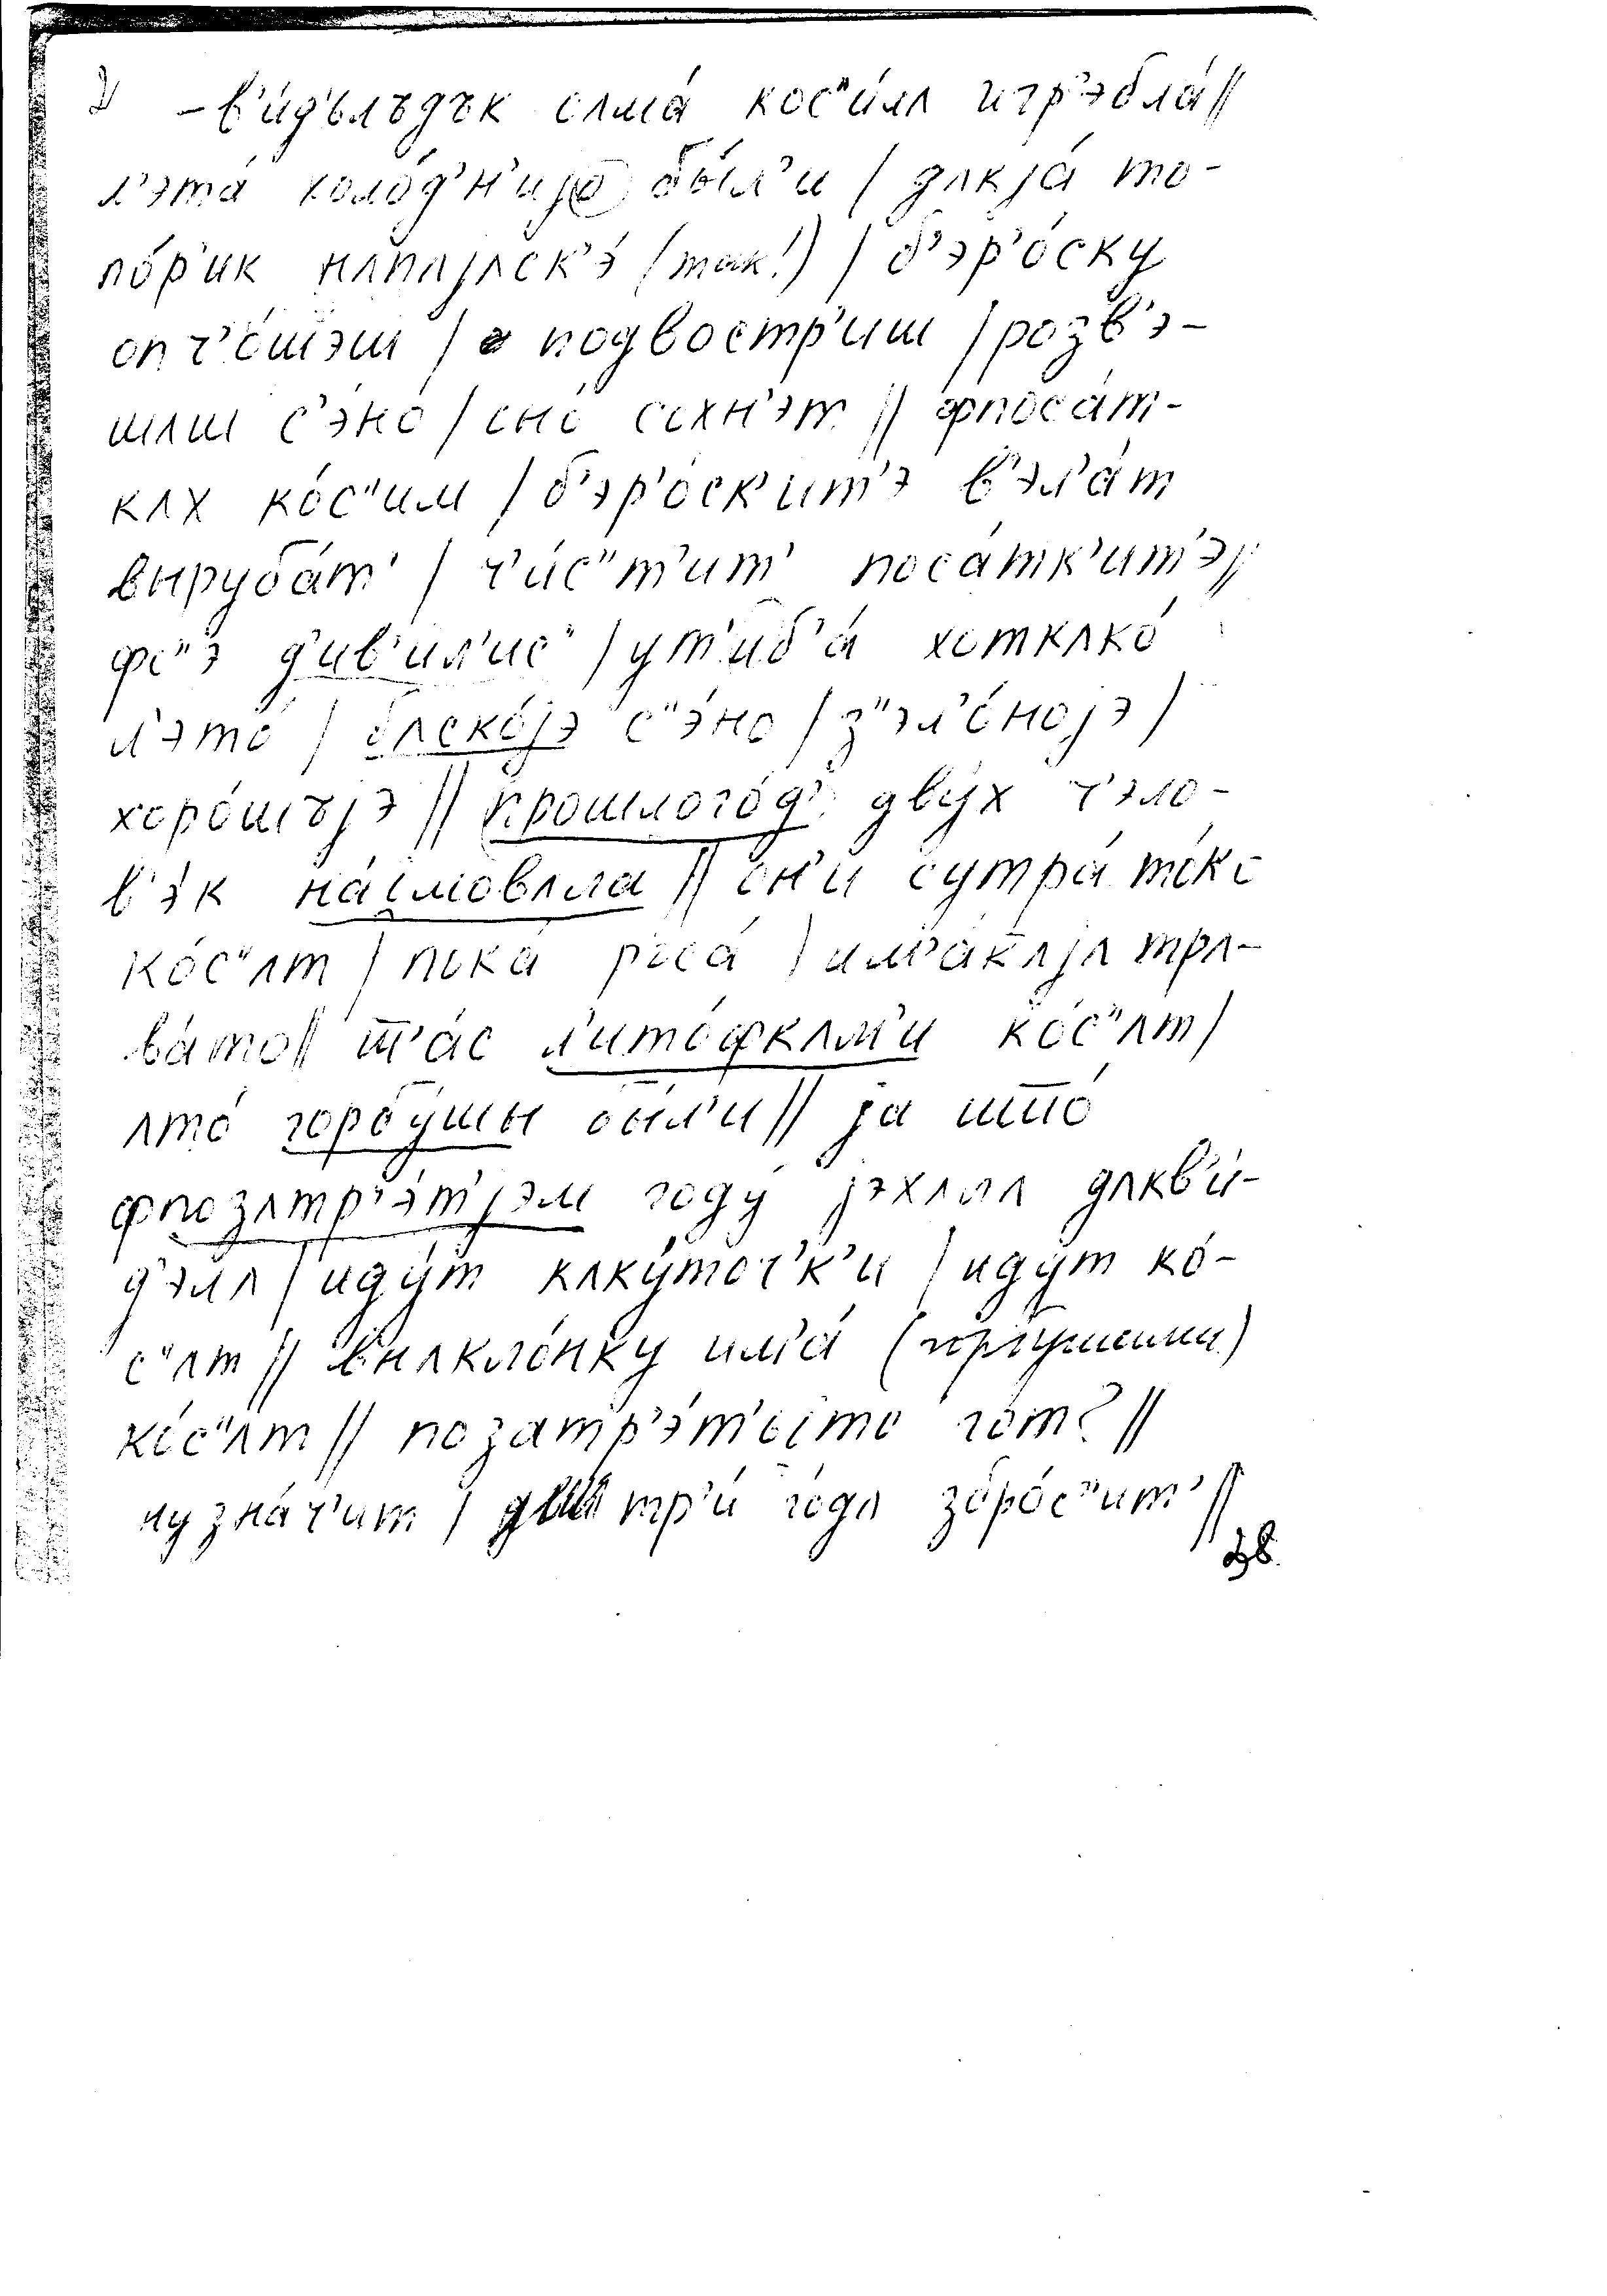 – в'и́д'ълъдък слма́ кос"и́лл игр'эбла́ //
л'эта́ холо́д'н'иjо бы́л'и / длкjа́ то-
по́р'ик нлплjлск'э́ (так!) / б'эр'о́ску
опч'о́шэш / подвостр'иш / розв'э-
шлш с'эно́ / оно́ со́хн'эт // фпоса́т-
клх ко́с"им / б'эр'о́ск'ит'э в'эл'а́т
выруба́т' / ч'и́с"т'ит' поса́тк'ит'э //
фс"э д'ив'и́л'ис" / ут'иб'а́ хотклко́
л'э́то / блско́jэ с"э́но / з"эл'о́ноjэ /
хоро́шъjэ // прошлого́д' дву́х ч'эло-
в'э́к на́имовлла // он'и́ сутра́ то́ко
ко́с"лт / пока́ роса́ / им'а́клjл трл-
ва́то // ш'а́с л'ито́фклм'и ко́с"лт /
лто́ горбу́шы были́ // jа што́
фпозлтр'э́т'jэм году́ jэ́хлл длкв'и́-
д'элл / иду́т клку́точ'к'и / иду́т ко́-
с"лт // вылкло́нку им'а́ (горбушами)
ко́с"лт // позатр'э́т'оjто го́т? //
ну зна́ч'ит / тр'и́ го́дл збро́с"ит' //